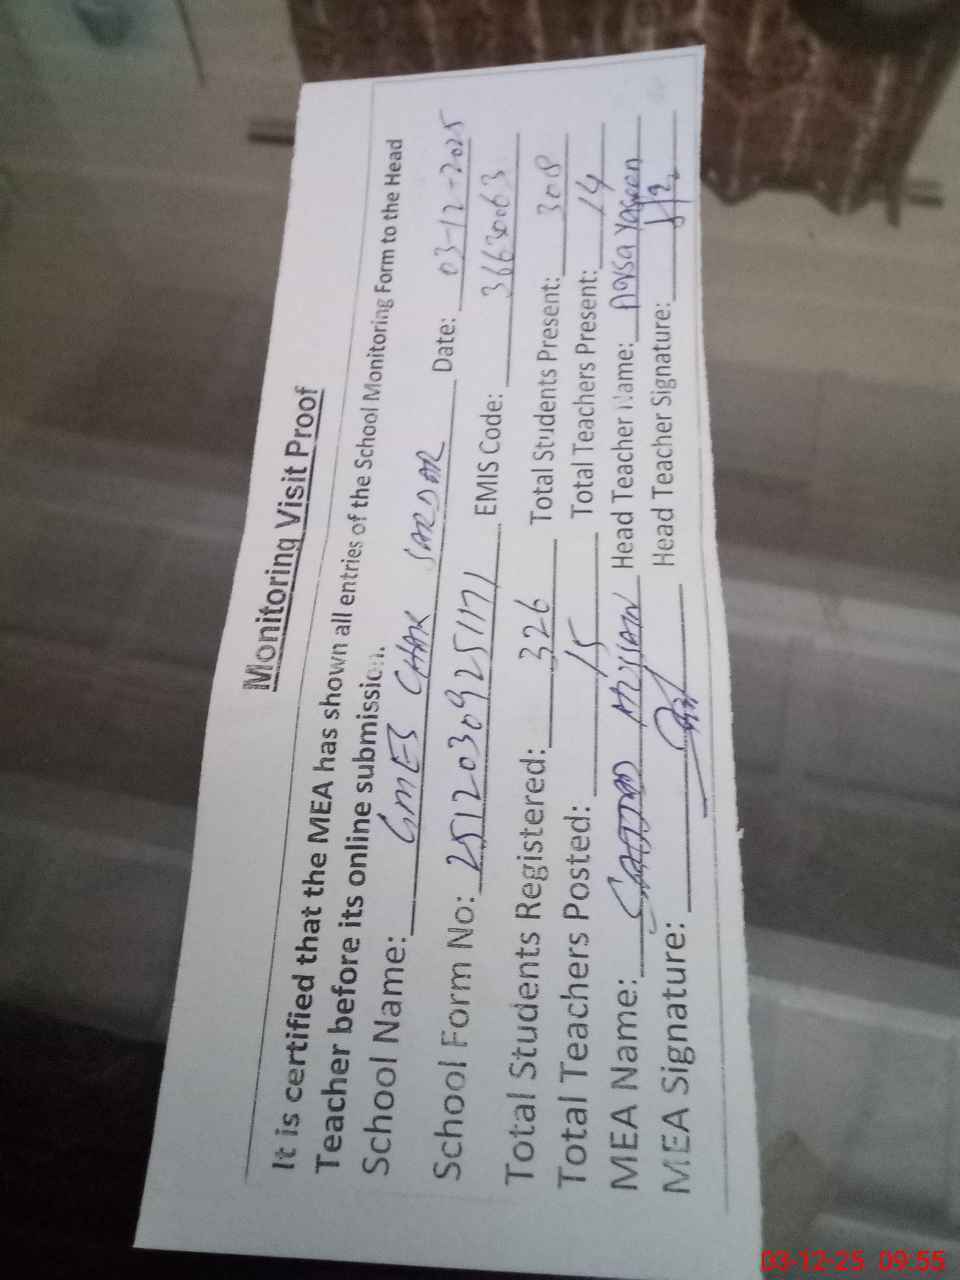 Monitoring Visit Proof
It is certified that the MEA has shown all entries of the School Monitoring Form to the Head
Teacher before its online submission.
School Name: GMES CHAK SARDAR Date: 03-12-2025
School Form No: 251203092517171 EMIS Code: 36630063
Total Students Registered: 326 Total Students Present: 308
Total Teachers Posted: 15 Total Teachers Present: 14
MEA Name: Head Teacher Name: Yaseen
MEA Signature: Head Teacher Signature:
03-12-25 09:55